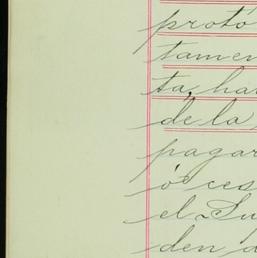 proto
tamen
ta, ha
de la
pagar
ó ces
el Su
den a